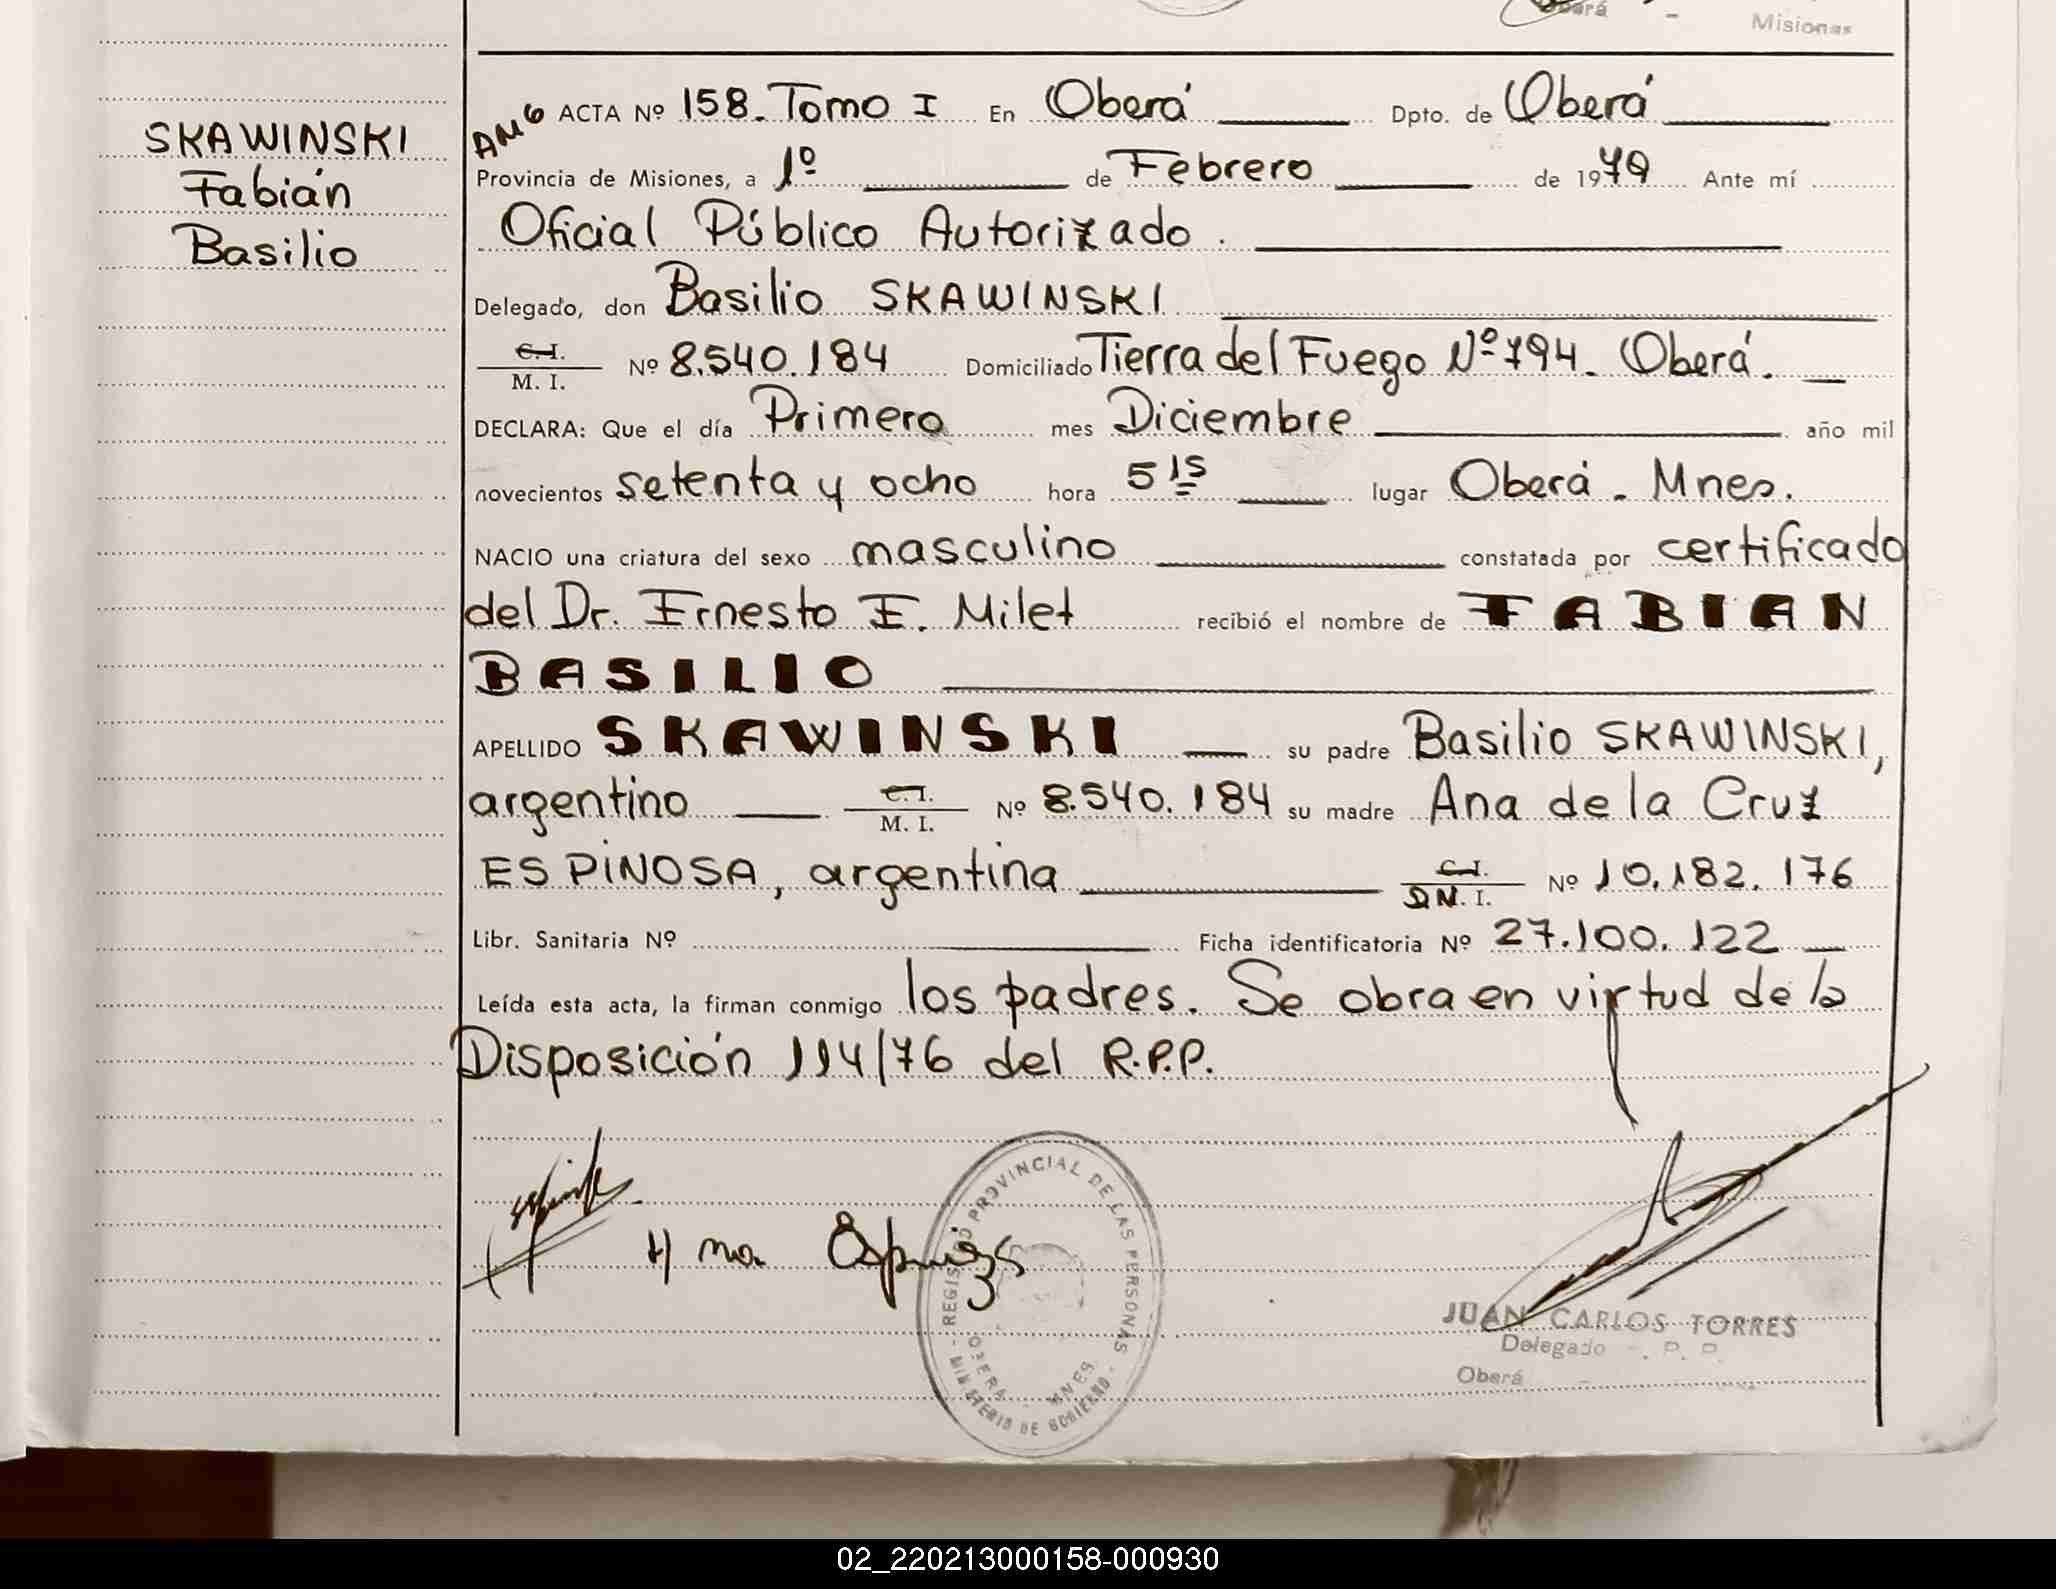 Oberá - Misiones
SKAWINSKI
Fabián
Basilio
AMG ACTA Nº 158. Tomo I En Oberá Dpto. de Oberá
Provincia de Misiones, a 1º de Febrero de 1979 Ante mí
Oficial Público Autorizado.
Delegado, don Basilio SKAWINSKI
C.I. M. I. Nº 8.540.184 Domiciliado Tierra del Fuego Nº 794. Oberá.
DECLARA: Que el día Primero mes Diciembre año mil
novecientos setenta y ocho hora 5 15 lugar Oberá. Mnes.
NACIO una criatura del sexo masculino constatada por certificado
del Dr. Ernesto E. Milet recibió el nombre de FABIAN
BASILIO
APELLIDO SKAWINSKI su padre Basilio SKAWINSKI,
argentino C.I. M. I. Nº 8.540.184 su madre Ana de la Cruz
ESPINOSA, argentina C.I. DN. I. Nº 10.182.176
Libr. Sanitaria Nº Ficha identificatoria Nº 27.100.122
Leída esta acta, la firman conmigo los padres. Se obra en virtud de la
Disposición 114/76 del R.P.P.
REGISTRO PROVINCIAL DE LAS PERSONAS
OBERA - MNES.
- MINISTERIO DE GOBIERNO -
JUAN CARLOS TORRES
Delegado P. P.
Oberá -
02_220213000158-000930